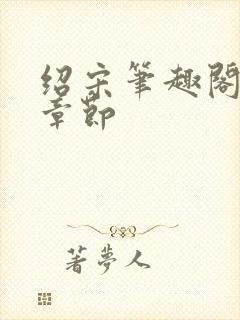 绍宋筆趣閣
章節
著夢人